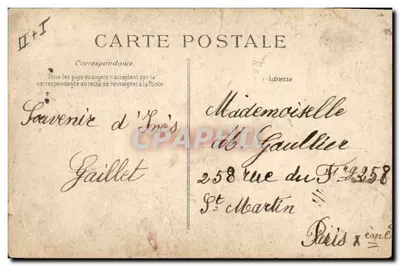 II + I
CARTE POSTALE
Correspondance
Tous les pays étrangers n'acceptent pas la
correspondance au recto, se renseigner à la Poste
Adresse
Souvenir d'Inès
Gaillet
Mademoiselle
M. Gaullier
258 rue du Fg 258
St Martin
Paris Xème
CPARAMA